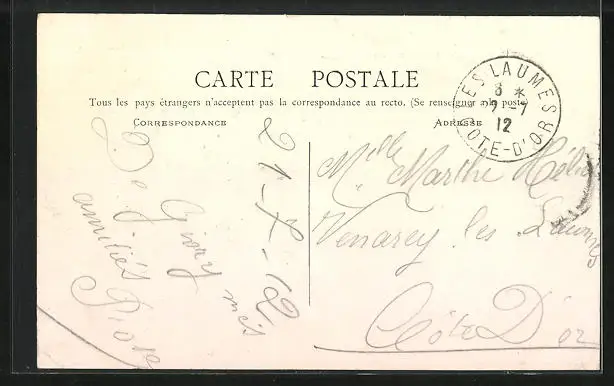 CARTE POSTALE
Tous les pays étrangers n'acceptent pas la correspondance au recto. (Se renseigner à la poste)
CORRESPONDANCE
ADRESSE
LES LAUMES
8 *
2-7
12
COTE-D'OR
21-7-12
De Givry mes
amitiés
Mlle Marthe
Venarey les Laumes
Côte D'or